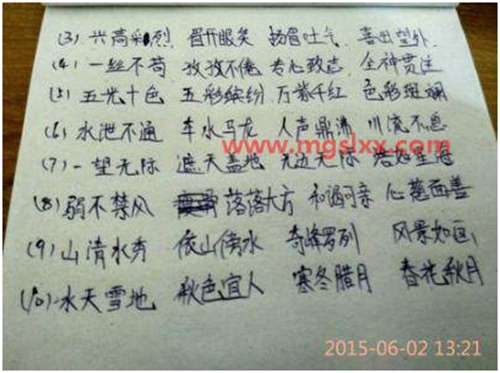 (3) 兴高彩烈 眉开眼笑 扬眉吐气 喜出望外
(4) 一丝不苟 孜孜不倦 专心致志 全神贯注
(5) 五光十色 五彩缤纷 万紫千红 色彩斑斓
(6) 水泄不通 车水马龙 人声鼎沸 川流不息
www.mgslxx.com
(7) 一望无际 遮天盖地 无边无际
(8) 弱不禁风 落落大方 和谒可亲 心慈面善
(9) 山清水秀 依山傍水 奇峰罗列 风景如画
(10) 水天雪地 秋色宜人 寒冬腊月 春花秋月
2015-06-02 13:21